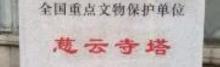 全国重点文物保护单位
慈云寺塔